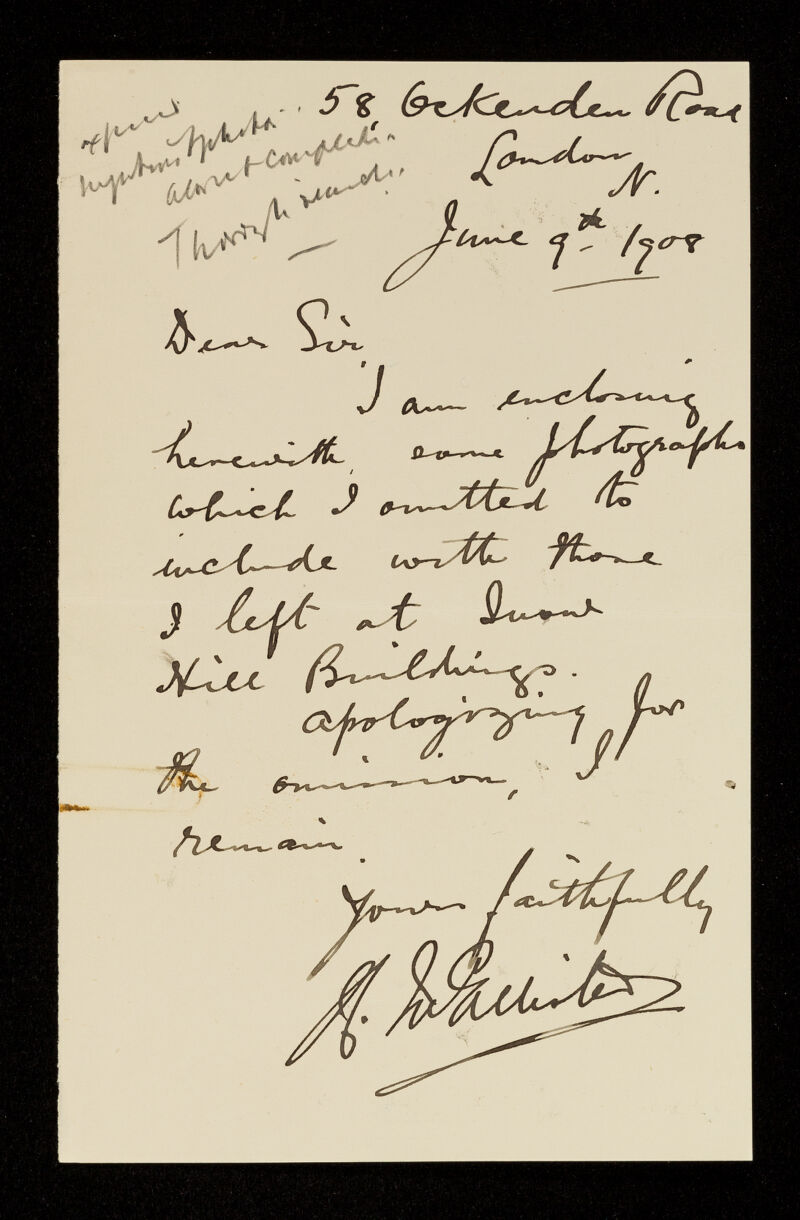 58, Ockenden Road
London
N.
June 9th 1908
Thorough search.
Dear Sir,
I am enclosing
herewith, some photographs
which I omitted to
include with those
I left at Snow
Hill Buildings.
Apologizing for
the omission, I
remain,
Yours faithfully
H. McCallister